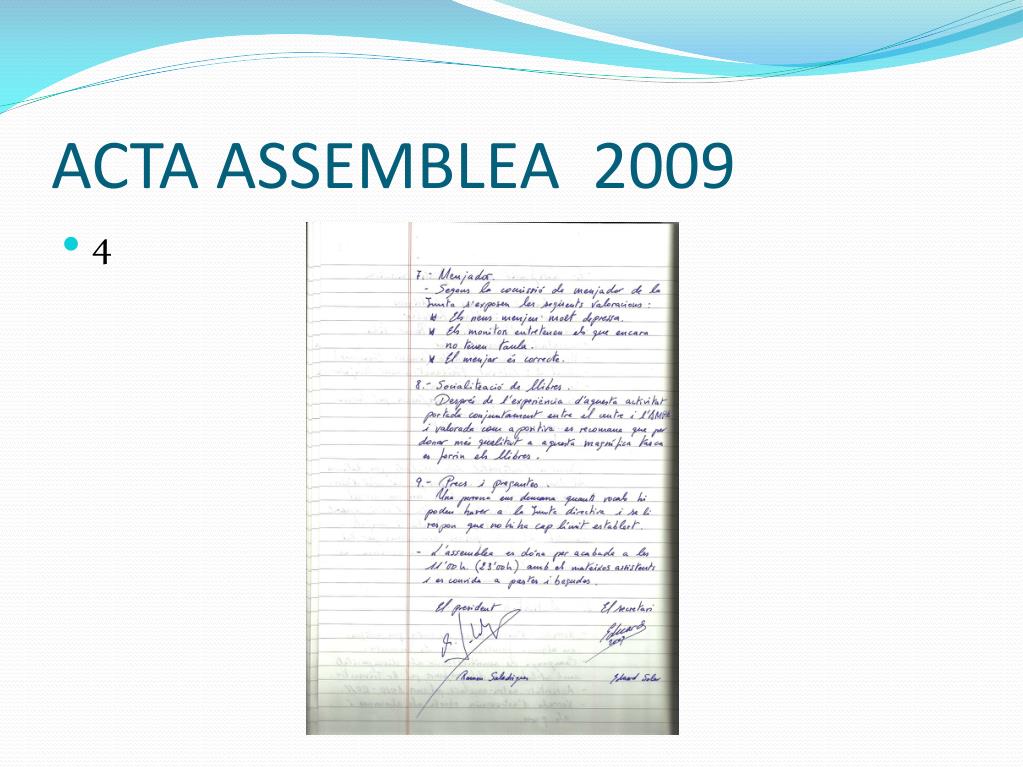 ACTA ASSEMBLEA 2009
4
7.- Menjador.
- Segons la comissió de menjador de la
Junta s'exposen les següents valoracions:
Els nens mengen molt depressa.
Els monitors entretenen els que encara
no tenen taula.
El menjar és correcte.
8.- Socialització de llibres.
Després de l'experiència d'aquesta activitat
portada conjuntament entre el centre i l'AMPA
i valorada com a positiva es recomana que per
donar més qualitat a aquesta magnífica tasca
es forrin els llibres.
9.- Precs i preguntes.
Una persona ens demana quants vocals hi
poden haver a la Junta directiva i se li
respon que no hi ha cap límit establert.
- L'assemblea es dóna per acabada a les
11'00h (23'00h) amb els mateixos assistents
i es convida a pastes i begudes.
El president El secretari
Eduard
Ramon Saladrigues Eduard Soler